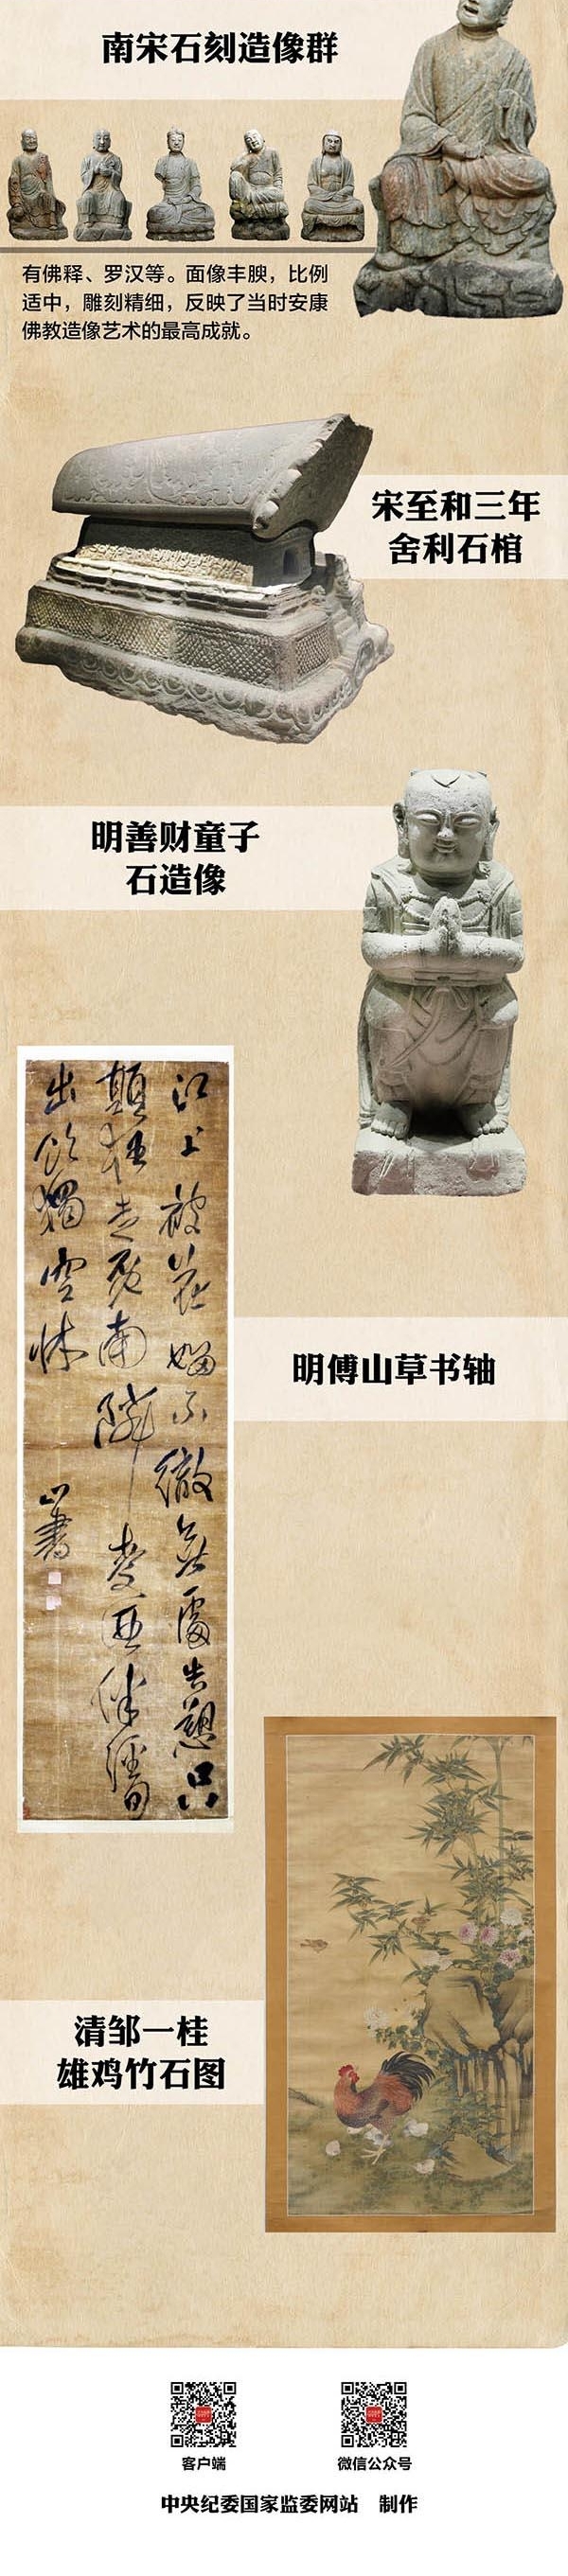 南宋石刻造像群
有佛释、罗汉等。面像丰腴，比例
适中，雕刻精细，反映了当时安康
佛教造像艺术的最高成就。
宋至和三年
舍利石棺
明善财童子
石造像
江上被花恼不彻无处告诉只
颠狂走觅南邻爱酒伴经旬
出饮独空床
山书
明傅山草书轴
清邹一桂
雄鸡竹石图
客户端
微信公众号
中央纪委国家监委网站 制作